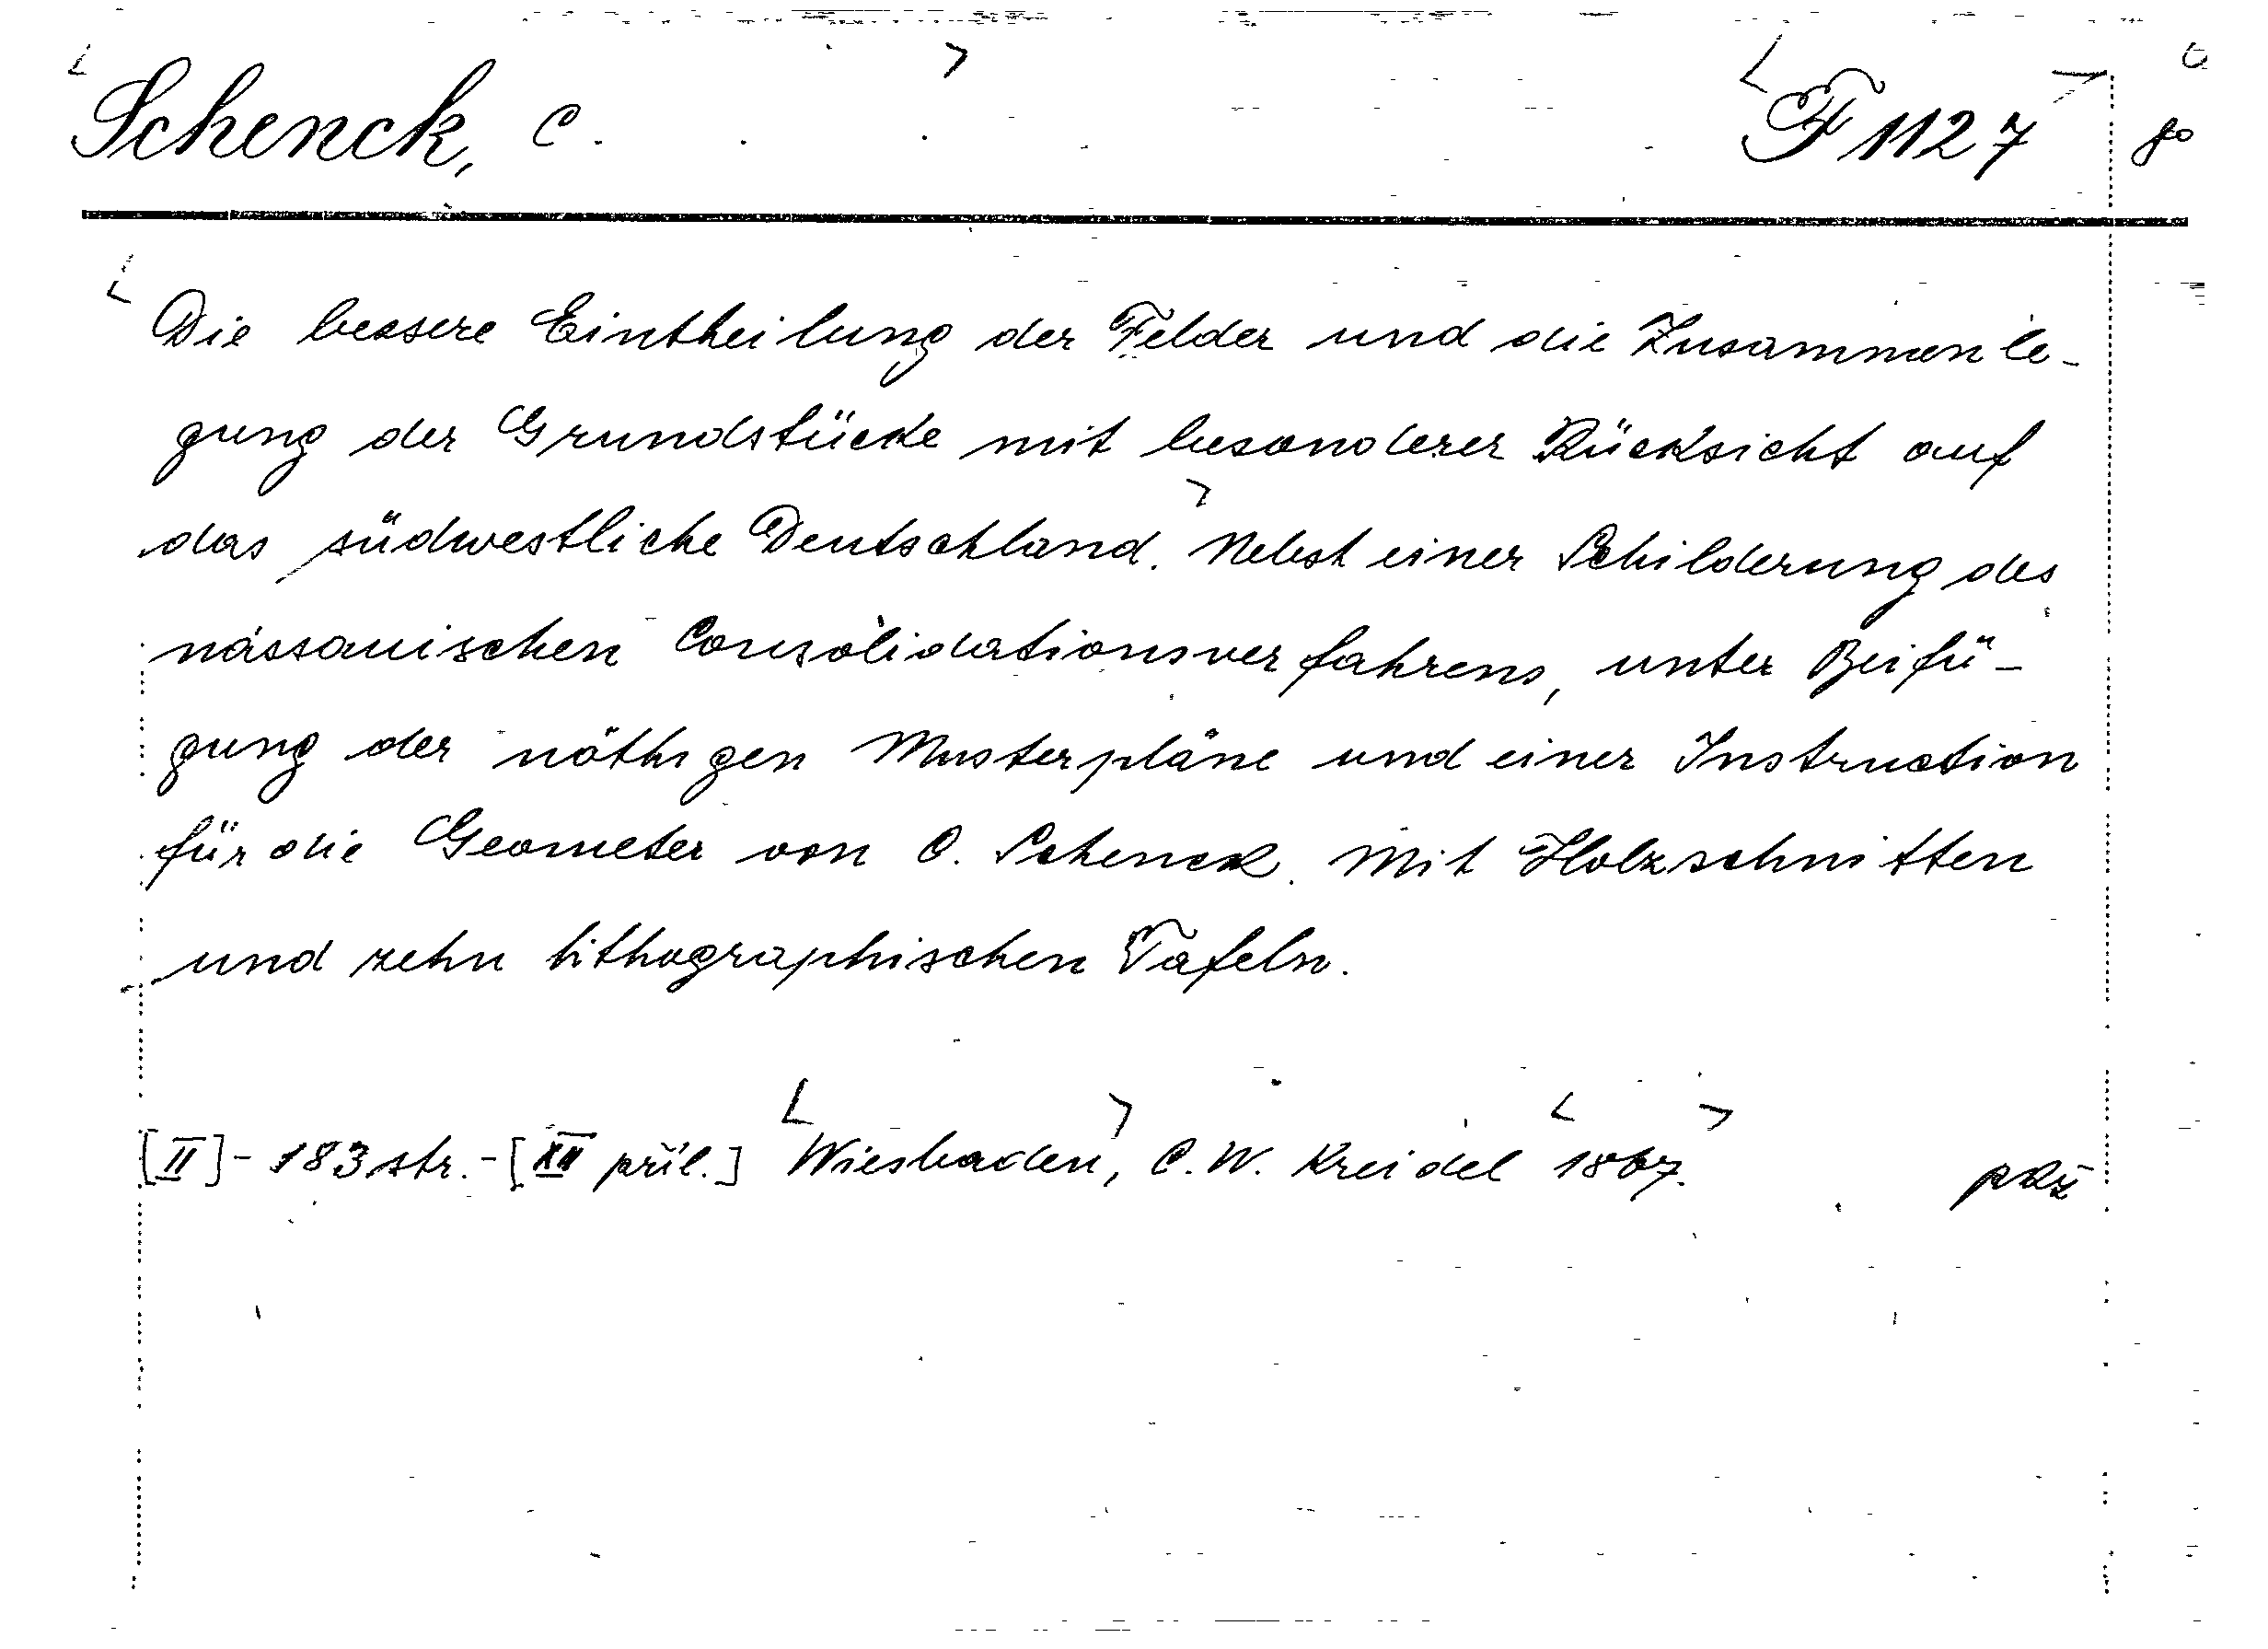 Schenck, C. F 1127 8°
Die bessere Eintheilung der Felder und die Zusammenle-
gung der Grundstücke mit besonderer Rücksicht auf
das südwestliche Deutschland. Nebst einer Schilderung des
nassauischen Consolidationsverfahrens, unter Beifü-
gung der nöthigen Musterpläne und einer Instruction
für die Geometer von C. Schenck. Mit Holzschnitten
und zehn lithographischen Tafeln.
[II] - 183 str. - [XII příl.] Wiesbaden, C. W. Kreidel 1867.